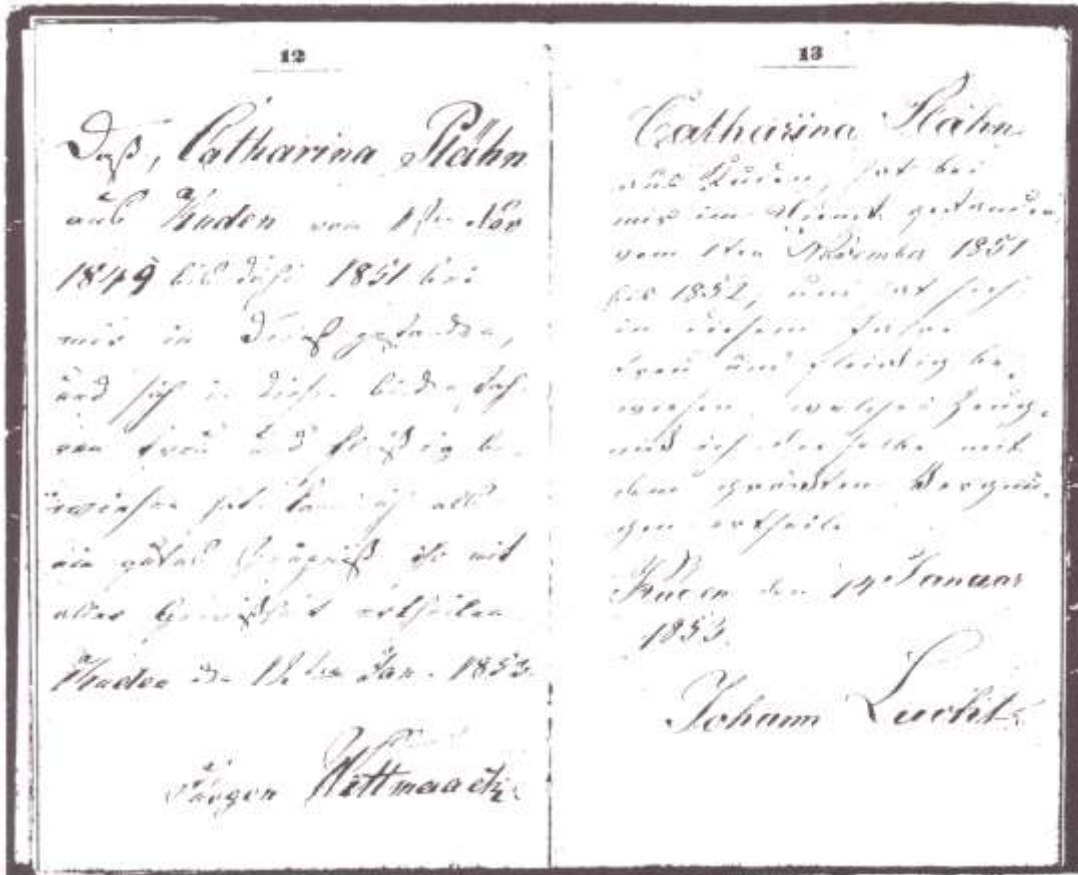 12
Daß, Catharina Plähn
aus Kuden vom 1sten Nov
1849 bis dahin 1851 bei
mir in Dienst gestanden,
und sich in diesen beiden Jah-
ren treu und fleißig be-
wiesen hat, kann ich als
ein gutes Zeugniß ihr mit
aller Gewißheit ertheilen
Kuden den Jan. 1853
Jürgen Wittmaack
13
Catharina Plähn
aus Kuden, hat bei
mir im Dienst gestanden
vom 1ten November 1851
bis 1852, und hat sich
in diesem Jahre
treu und fleissig be-
wiesen, welches Zeug-
niß ich derselben mit
dem grössten Vergnü-
gen ertheile
Kuden den 14 Januar
1853.
Johann Lucht